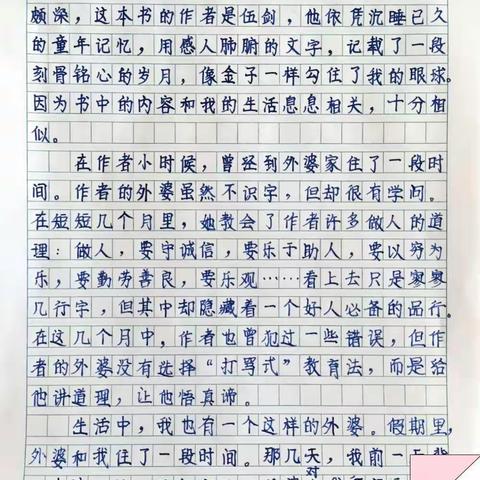 颇深，这本书的作者是伍剑，他依凭沉睡已久
的童年记忆，用感人肺腑的文字，记载了一段
刻骨铭心的岁月，像金子一样勾住了我的眼球。
因为书中的内容和我的生活息息相关，十分相
似。
在作者小时候，曾经到外婆家住了一段时
间。作者的外婆虽然不识字，但却很有学问。
在短短几个月里，她教会了作者许多做人的道
理：做人，要守诚信，要乐于助人，要以穷为
乐，要勤劳善良，要乐观……看上去只是寥寥
几行字，但其中却隐藏着一个好人必备的品行。
在这几个月中，作者也曾犯过一些错误，但作
者的外婆没有选择“打骂式”教育法，而是给
他讲道理，让他悟真谛。
生活中，我也有一个这样的外婆。假期里，
外婆和我住了一段时间。那几天，我前一天
对